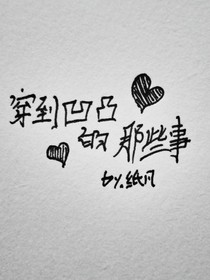 穿到凹凸
的那些事
by.纸凡